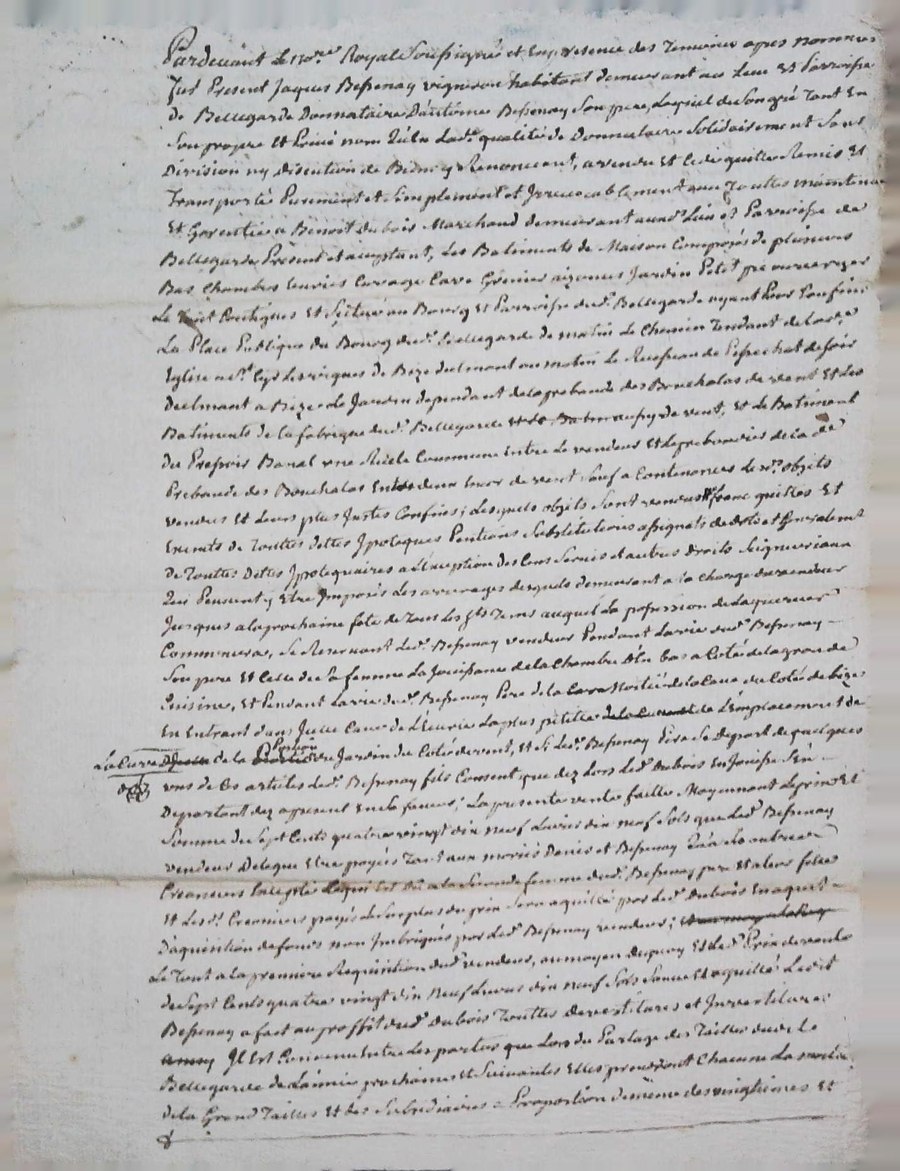 Pardevant Le nore Royal Soussigné et En presence des Temoins apres nommes
fut Present Jaques Bessenay vigneron habitant demeurant au Lieu Et Parroisse
de Bellegarde Donnataire D'antoine Bessenay Son pere, Lequel de Son gré Tant En
Son propre Et Privé nom qu'En Lade qualité de Donnataire Solidairement Sans
Division ny discution de Biens y Renoncant, a vendu Et Cede quitte Remis Et
Transporté Purement et Simplement et Irrevocablement avec Touttes maintenue
Et Garentie a Benoit dubois Marchand demeurant Lieu et Parroisse de
Bellegarde Present et acceptant, Les Batiments de Maison Composés de plusieurs
Bas Chambres Ecuries Cuvage Cave Grenier aizances Jardin Petit pré
Le Tout Contigues Et Scitué au Bourg Et Parroisse dud. Bellegarde ayant Pour Confins
La Place Publique du Bourg dud. Bellegarde de matin Le Chemin Tendant de Lade
Eglise de Bize Le Ruisseau de de soir
a Bize Le Jardin dependant de la prebande des Bouchalas de vent Et Les
Batiments de la fabrique dud. Bellegarde de vent, Et Le Batiment
du Pressoir Banal une Ruelle Commune Entre Le vendeur Et Le prebandier de la de
Prebande des Bouchalas Entre deux de vent Sauf a Contenances Led. objets
vendus Et Leurs plus Justes Confins; Lesquels objets Sont vendus franc quittes Et
Exempts de Touttes dettes Ipoteques Pentions Substitutions assignats de dots et Generalement
De Touttes Dettes Ipotequaires a L'Exception des Cens Servis et autres droits Seigneuriaux
qui Peuvent y Etre Imposés Les arrerages desquels demeurant a la Charge du vendeur
Jusques a la prochaine fete de Tous Les Sts Tems auquel La possession de Laquereur
Commencera, Se Reservant Led. Bessenay vendeur Pendant La vie dud. Bessenay
Son pere Et Celle de Sa femme La Jouissance de la Chambre d'En bas a Coté de la grande
Cuisine, Et Pendant La vie dud. Bessenay Pere de la Moitié de la Cave du Coté de bize
En Entrant dans Icelle Cave de L'Ecurie La plus petitte de L'Emplacement de
La Cuve de la Portion du Jardin du Coté de vent, Et Si Led. Bessenay Pere Se Depart de quelques
uns de Ces articles Led. Bessenay fils Consent que dez Lors Led. dubois En Jouisse S'En
Departant dez apresent En Sa faveur; La presente vente faitte Moyennant Le prix Et
Somme de Sept Cents quatre vingt dix neuf Livres dix neuf Sols que Led. Bessenay
vendeur Delegue Etre payés Tant aux mariés Denis et Bessenay qu'a d'autres
Creanciers Excepté Ce qui Est dû a la Seconde femme dud. Bessenay pere
Et Lesd. Creanciers payés Le Surplus du prix Sera aquitté par Led. dubois En aquet
D'aquisition de fonds non Imbriqués par Led. Bessenay vendeur;
Le Tout a la premiere Requisition dud. vendeur, au moyen de quoy Et Led. Prix de vente
de Sept Cents quatre vingt dix Neuf Livres dix neuf Sols Payé Et aquitté Ledit
Bessenay a fait au proffit dud. dubois Touttes Devestitures et Investitures
Il Est Convenu Entre Les parties que Lors du Partage des Tailles dud.
Bellegarde de L'année prochaine Et Suivantes Elles prendront Chacune La moitié
de la Grand Tailles Et des Subsidiaires a Proportion de meme des vingtiemes Et